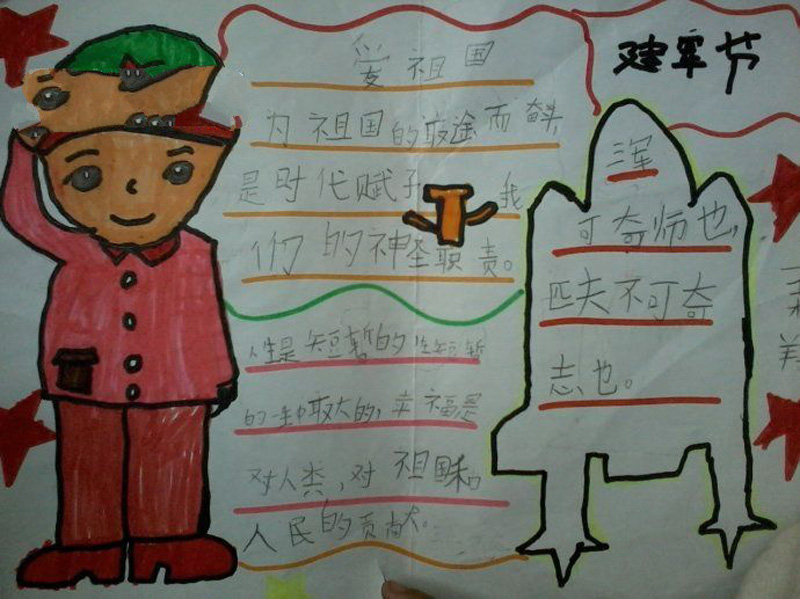 建军节
爱祖国
为祖国的前途而奋头
是时代赋予我
们的神圣职责。
人生是短暂的在短暂
的一生中取大的,幸福是
对人类,对祖国和
人民的贡献。
三军
可奇师也,
匹夫不可奇
志也。